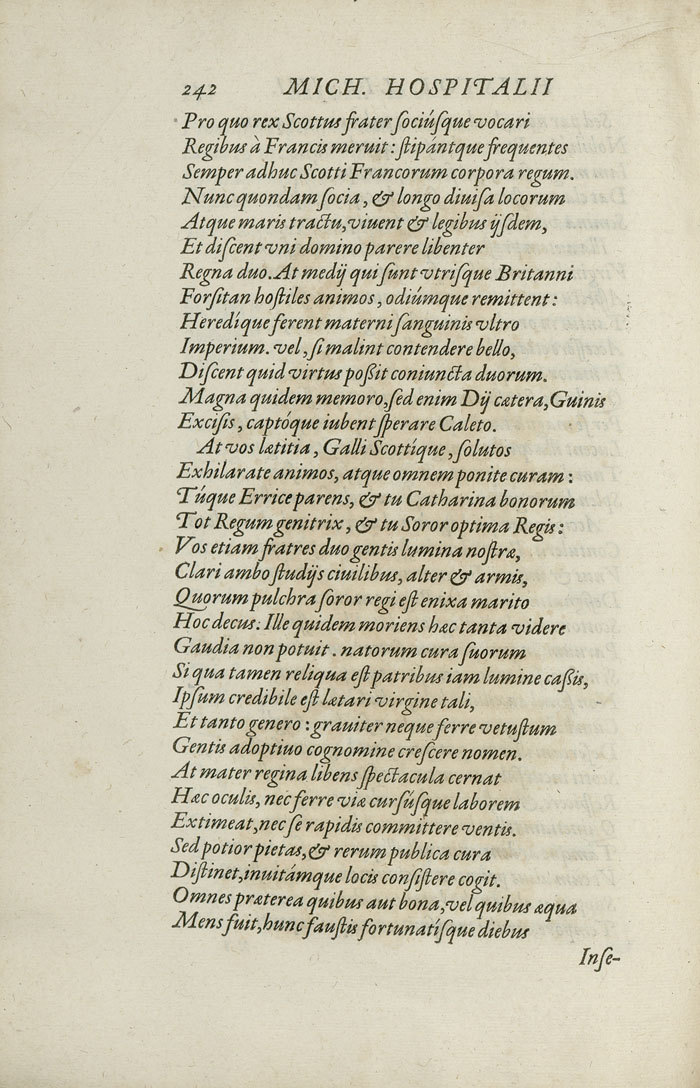 242 MICH. HOSPITALII
Pro quo rex Scottus frater ſociúſque vocari
Regibus à Francis meruit : ſtipántque frequentes
Semper adhuc Scotti Francorum corpora regum.
Nunc quondam ſocia, & longo diuiſa locorum
Atque maris tractu, viuent & legibus ijſdem,
Et diſcent vni domino parere libenter
Regna duo. At medij qui ſunt vtriſque Britanni
Forſitan hoſtiles animos, odiúmque remittent :
Heredíque ferent materni ſanguinis vltro
Imperium. vel, ſi malint contendere bello,
Diſcent quid virtus poßit coniuncta duorum.
Magna quidem memoro, ſed enim Dij cætera, Guinis
Exciſis, captóque iubent ſperare Caleto.
At vos lætitia, Galli Scottíque, ſolutos
Exhilarate animos, atque omnem ponite curam :
Túque Errice parens, & tu Catharina bonorum
Tot Regum genitrix, & tu Soror optima Regis :
Vos etiam fratres duo gentis lumina noſtræ,
Clari ambo ſtudijs ciuilibus, alter & armis,
Quorum pulchra ſoror regi eſt enixa marito
Hoc decus. Ille quidem moriens hæc tanta videre
Gaudia non potuit. natorum cura ſuorum
Si qua tamen reliqua eſt patribus iam lumine caßis,
Ipſum credibile eſt lætari virgine tali,
Et tanto genero : grauiter neque ferre vetuſtum
Gentis adoptiuo cognomine creſcere nomen.
At mater regina libens ſpectacula cernat
Hæc oculis, nec ferre viæ curſúſque laborem
Extimeat, nec ſe rapidis committere ventis.
Sed potior pietas, & rerum publica cura
Diſtinet, inuitámque locis conſiſtere cogit.
Omnes præterea quibus aut bona, vel quibus æqua
Mens fuit, hunc fauſtis fortunatiſque diebus
Inſe-